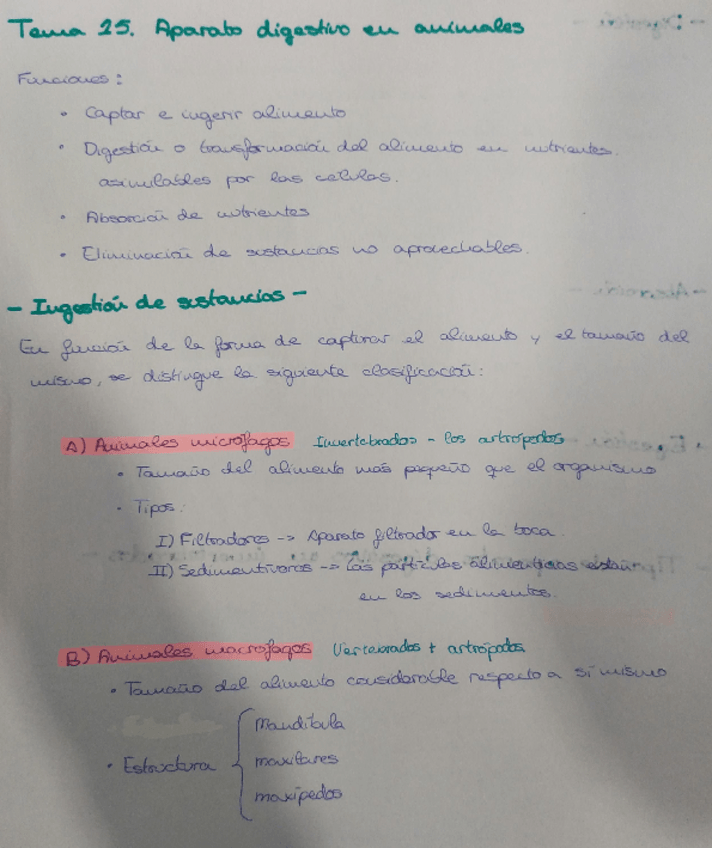 Tema 25. Aparato digestivo en animales
Funciones:
• Captar e ingerir alimento
• Digestión o transformación del alimento en nutrientes.
asimilables por las celulas.
• Absorción de nutrientes
• Eliminación de sustancias no aprovechables.
- Ingestión de sustancias -
En función de la forma de capturar el alimento y el tamaño del
mismo, se distingue la siguiente clasificación:
A) Animales micrófagos Invertebrados - los artrópodos
• Tamaño del alimento más pequeño que el organismo
• Tipos:
I) Filtradores -> Aparato filtrador en la boca.
II) Sedimentívoros -> Las partículas alimenticias están
en los sedimentos.
B) Animales macrófagos Vertebrados + artrópodos
• Tamaño del alimento considerable respecto a sí mismo
• Estructura { mandíbula
maxilares
maxípedos